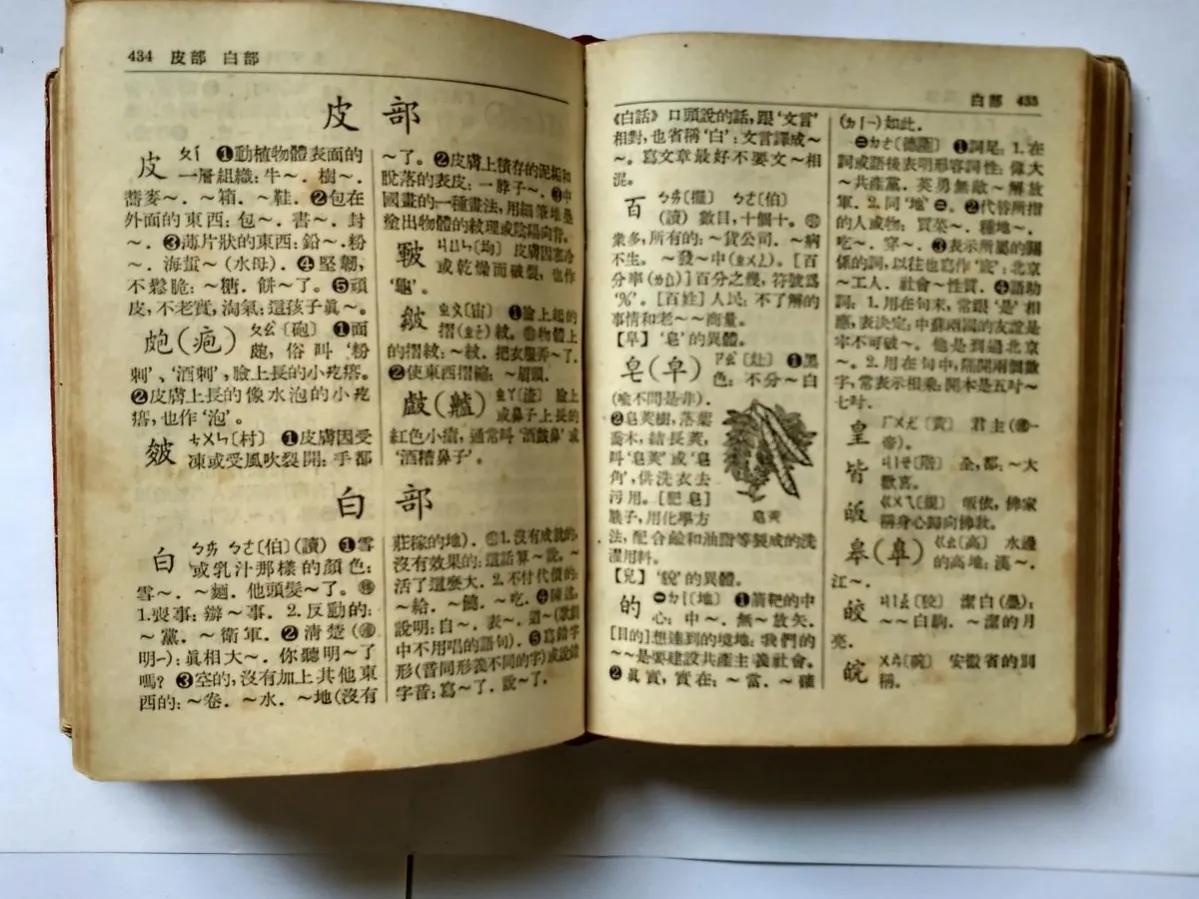 434 皮部 白部
皮部
皮 ㄆㄧ ❶動植物體表面的
一層組織:牛~.樹~.
蕎麥~.~箱.~鞋.❷包在
外面的東西:包~.書~.封
~.❸薄片狀的東西:鉛~.粉
~.海蜇~(水母).❹堅韌,
不鬆脆:~糖.餅~了.❺頑
皮,不老實,淘氣:這孩子眞~.
皰(疱) ㄆㄠ〔砲〕❶面
皰,俗叫‘粉
刺’、‘酒刺’,臉上長的小疙瘩.
❷皮膚上長的像水泡的小疙
瘩,也作‘泡’.
皴 ㄘㄨㄣ〔村〕❶皮膚因受
凍或受風吹裂開:手都
~了.❷皮膚上積存的泥垢和
脫落的表皮:一脖子~.❸中
國畫的一種畫法,用細筆堆墨
塗出物體的紋理或陰陽向背.
皸 ㄐㄩㄣ〔均〕皮膚因寒冷
或乾燥而破裂,也作
‘龜’.
皺 ㄓㄡ〔宙〕❶臉上起的
摺(ㄓㄜ)紋.物體上
的摺紋:~紋.把衣服弄~了.
❷使東西摺縮:~眉頭.
皻(齇) ㄓㄚ〔渣〕臉上
或鼻子上長的
紅色小瘡,通常叫‘酒皻鼻’或
‘酒糟鼻子’.
白部
白 ㄅㄞ ㄅㄛ〔伯〕(讀)❶雪
或乳汁那樣的顏色:
雪~.~麵.他頭髮~了.
1.喪事:辦~事. 2.反動的:
~黨.~衛軍.❷清楚(
明-):眞相大~.你聽明~了
嗎?❸空的,沒有加上其他東
西的:~卷.~水.~地(沒有
莊稼的地).1.沒有成就的,
沒有效果的:這話算~說.~
活了這麼大. 2.不付代價的:
~給.~饒.~吃.❹陳述,
說明:自~.表~.道~(歌劇
中不用唱的語句).❺寫錯字
形(音同形義不同的字)或說錯
字音:寫~了.說~了.
白部 435
《白話》口頭說的話,跟‘文言’
相對,也省稱‘白’:文言譯成~
~.寫文章最好不要文~相
混.
百 ㄅㄞ〔擺〕 ㄅㄛ〔伯〕
(讀)數目,十個十.
衆多,所有的:~貨公司.~病
不生.~發~中(ㄓㄨㄥ).[百
分率(ㄌㄩ)]百分之幾,符號爲
‘%’.[百姓]人民:不了解的
事情和老~~商量.
【皁】‘皂’的異體.
皂(皁) ㄗㄠ〔灶〕❶黑
色:不分~白
(喻不問是非).
❷皂莢樹,落葉
喬木,結長莢,
叫‘皂莢’或‘皂
角’,供洗衣去
污用.[肥皂]
胰子,用化學方
法,配合鹼和油脂等製成的洗
濯用料.
皂莢
【皃】‘貌’的異體.
的 ㊀ㄉㄧ〔地〕❶箭靶的中
心:中~.無~放矢.
[目的]想達到的境地:我們的
~~是要建設共產主義社會.
❷眞實,實在:~當.~確
(ㄉㄧ-)如此.
㊁ㄉㄜ〔德輕〕❶詞尾: 1.在
詞或語後表明形容詞性:偉大
~共產黨.英勇無敵~解放
軍. 2.同‘地’㊁.❷代替所指
的人或物:買菜~.種地~.
吃~.穿~.❸表示所屬的關
係的詞,以往也寫作‘底’:北京
~工人.社會~性質.❹語助
詞: 1.用在句末,常跟‘是’相
應,表決定:中蘇兩國的友誼是
牢不可破~.他是到過北京
~. 2.用在句中,隔開兩個數
字,常表示相乘:開本是五吋~
七吋.
皇 ㄏㄨㄤ〔黃〕君主(-
帝).
皆 ㄐㄧㄝ〔階〕全,都:~大
歡喜.
皈 ㄍㄨㄟ〔規〕皈依,佛家
稱身心歸向佛敎.
皋(臯) ㄍㄠ〔高〕水邊
的高地:漢~.
江~.
皎 ㄐㄧㄠ〔狡〕潔白(疊):
~~白駒.~潔的月
亮.
皖 ㄨㄢ〔碗〕安徽省的別
稱.